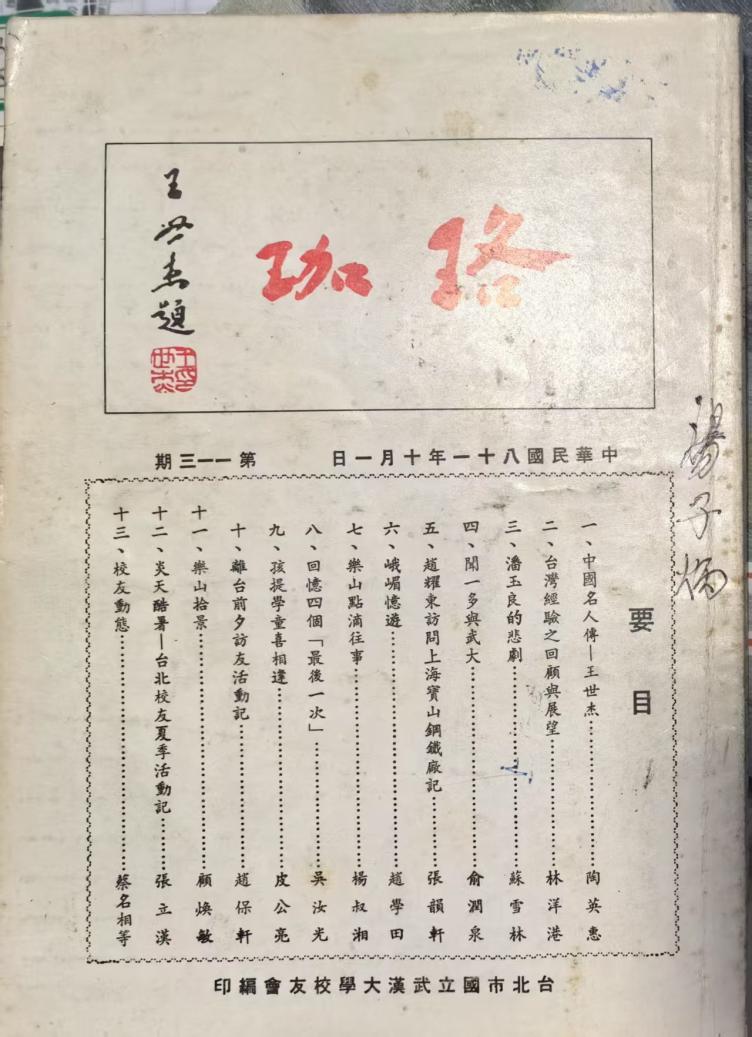 珞珈
王世杰題
王世杰印
中華民國八十一年十月一日 第一一三期
要目
一、中國名人傳—王世杰……陶英惠
二、台灣經驗之回顧與展望……林洋港
三、潘玉良的悲劇……蘇雪林
四、聞一多與武大……俞潤泉
五、趙耀東訪問上海寶山鋼鐵廠記……張韻軒
六、峨嵋憶遊……趙學田
七、樂山點滴往事……楊叔湘
八、回憶四個「最後一次」……吳汝光
九、孩提學童喜相逢……皮公亮
十、離台前夕訪友活動記……趙保軒
十一、樂山拾景……顧煥敏
十二、炎天酷暑—台北校友夏季活動記……張立漢
十三、校友動態……蔡名相等
台北市國立武漢大學校友會編印